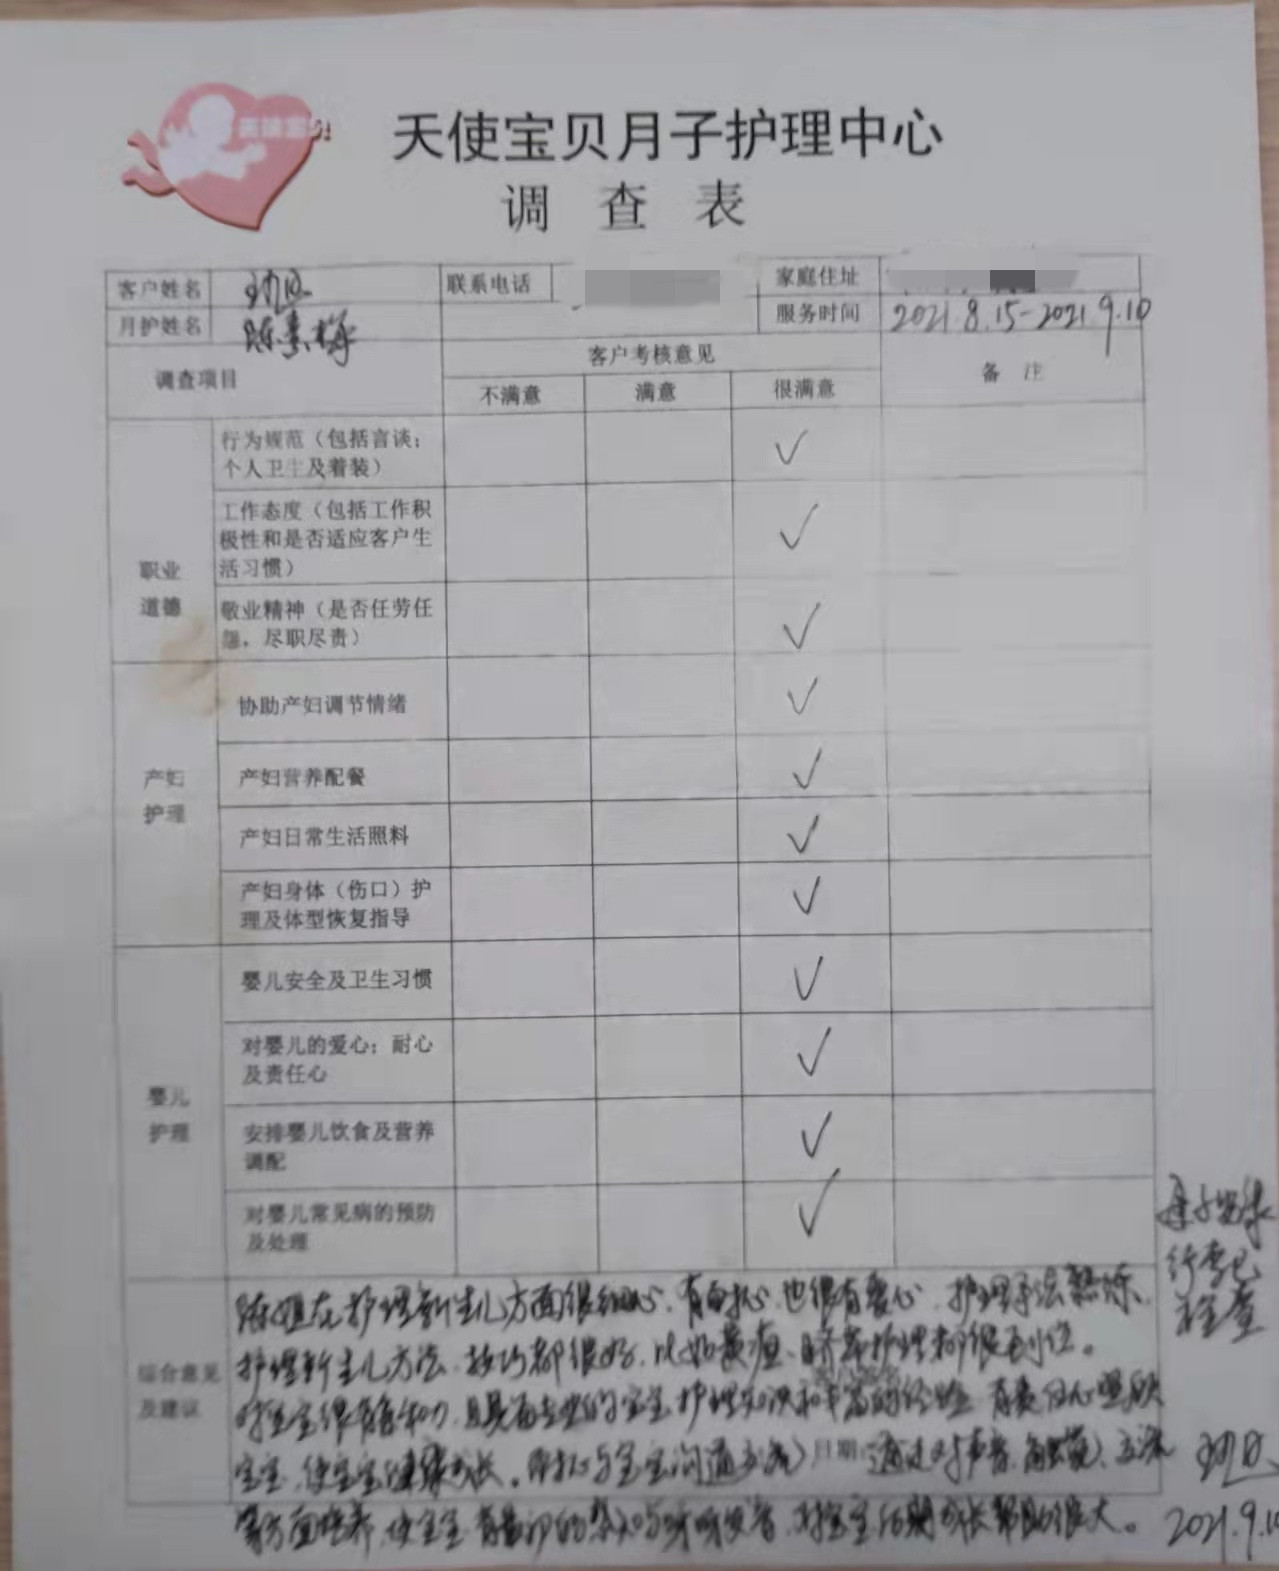 天使宝贝
天使宝贝月子护理中心
调 查 表
客户姓名
联系电话
家庭住址
月护姓名 陈素梅
服务时间 2021.8.15-2021.9.10
调查项目
客户考核意见
备 注
不满意 满意 很满意
职业
道德
行为规范（包括言谈；
个人卫生及着装）
√
工作态度（包括工作积
极性和是否适应客户生
活习惯）
√
敬业精神（是否任劳任
怨，尽职尽责）
√
产妇
护理
协助产妇调节情绪 √
产妇营养配餐 √
产妇日常生活照料 √
产妇身体（伤口）护
理及体型恢复指导
√
婴儿
护理
婴儿安全及卫生习惯 √
对婴儿的爱心；耐心
及责任心
√
安排婴儿饮食及营养
调配
√
对婴儿常见病的预防
及处理
√
综合意见
及建议
陈姐在护理新生儿方面很细心、有耐心、也很有爱心、护理手法熟练、
护理新生儿方法、技巧都很好，比如黄疸、脐带护理都很到位。
对宝宝很有亲和力，且具有专业的宝宝护理知识和丰富的经验，有责任心照顾
宝宝，使宝宝健康成长。耐心与宝宝沟通交流 日期： 通过对声音、触觉、交流
等方面培养，使宝宝有最初的感知与 发育，对宝宝后期成长帮助很大。
行李已
检查
2021.9.10